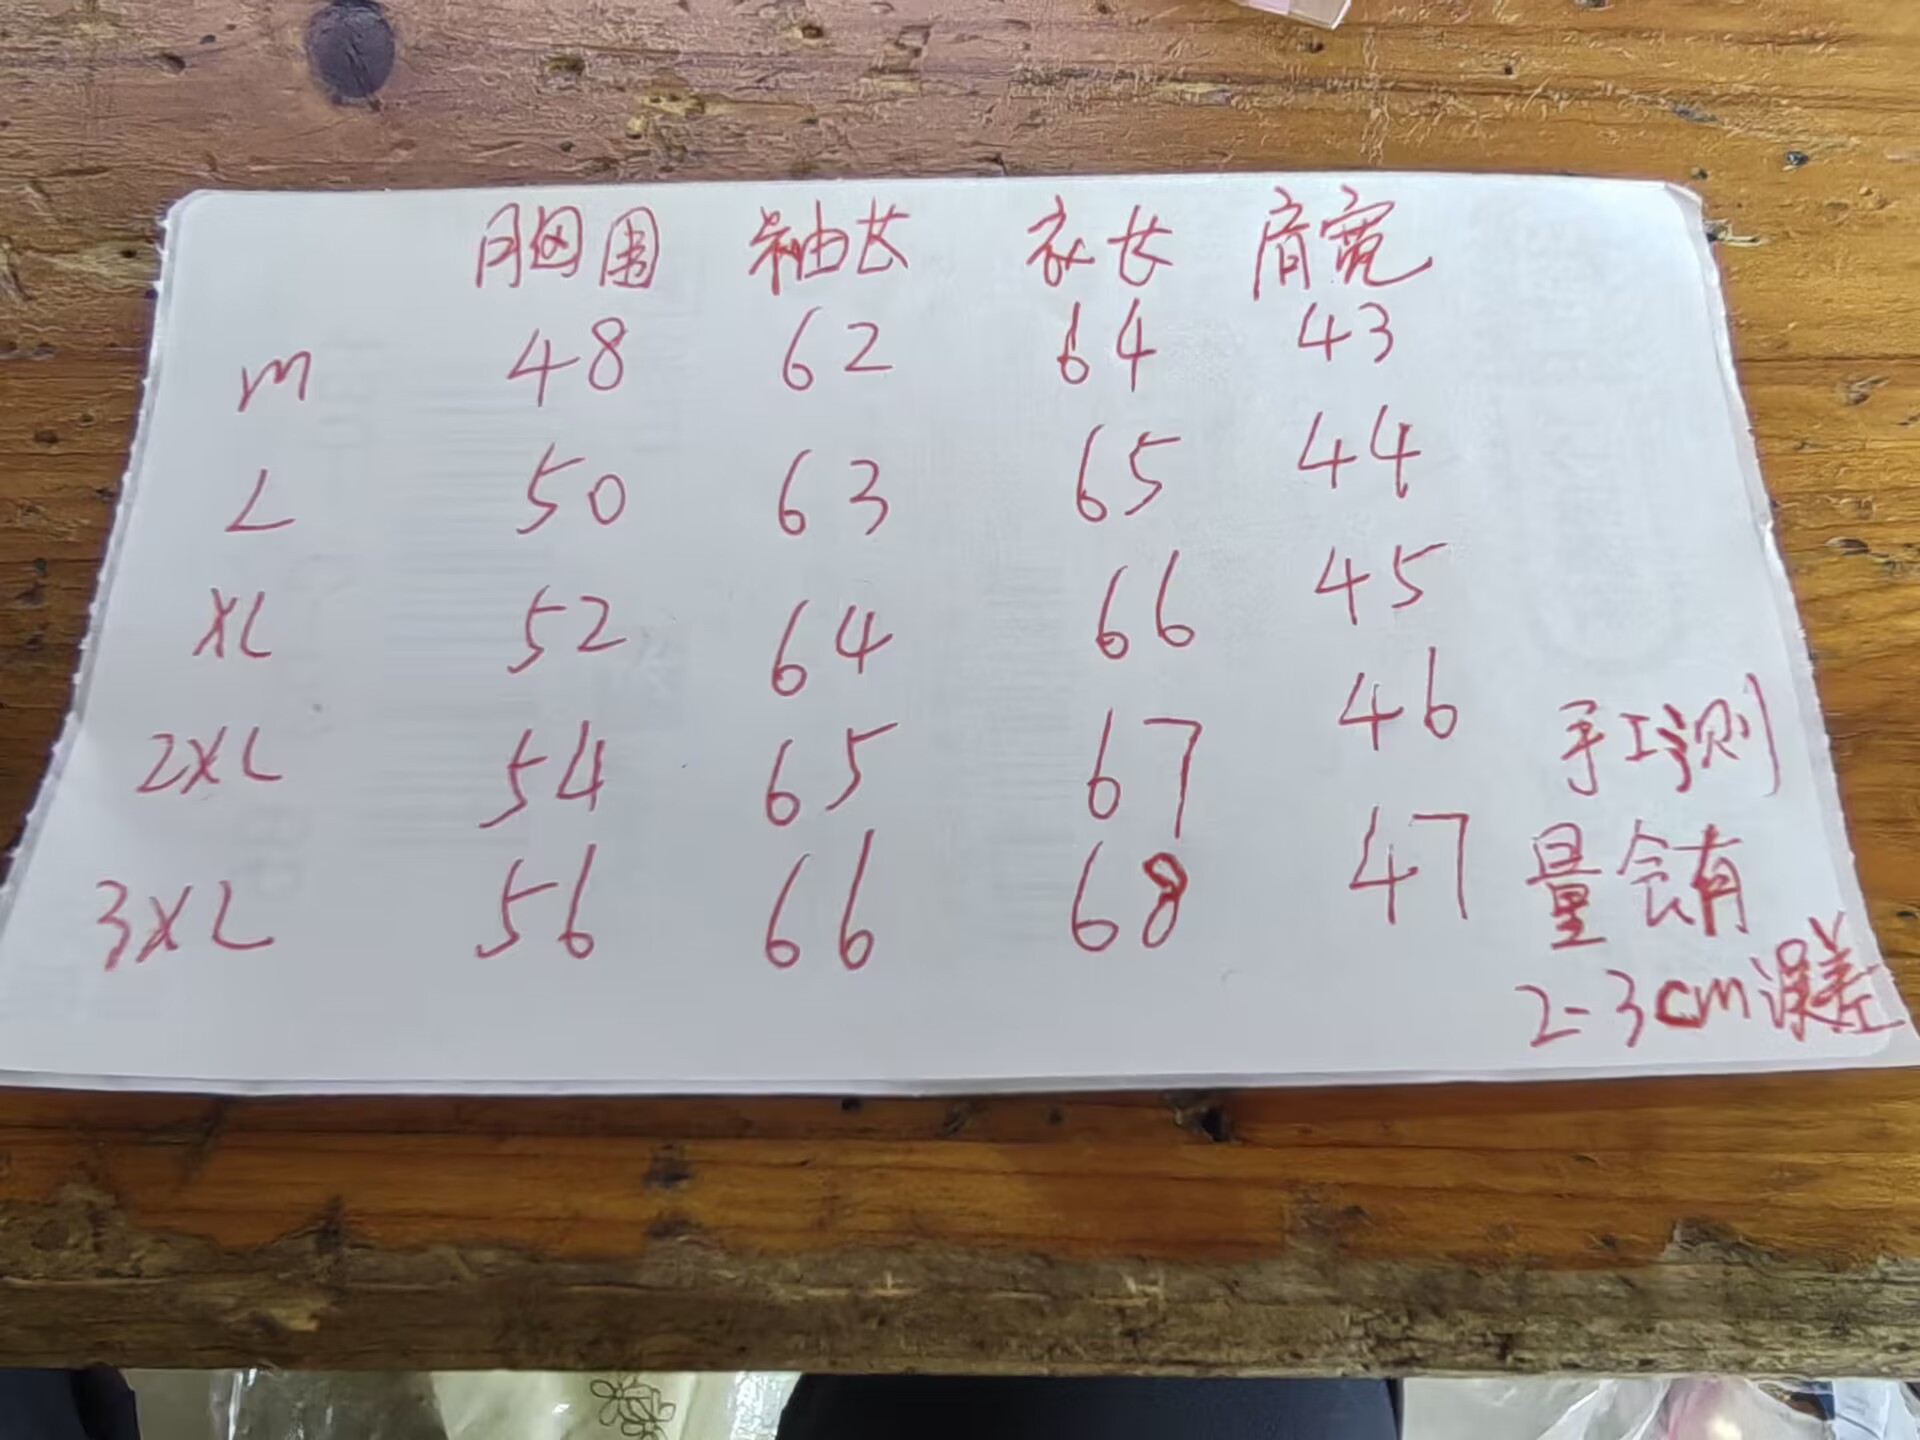 胸围 袖长 衣长 肩宽
m 48 62 64 43
L 50 63 65 44
XL 52 64 66 45
2XL 54 65 67 46
3XL 56 66 68 47
手工测
量会有
2-3cm误差